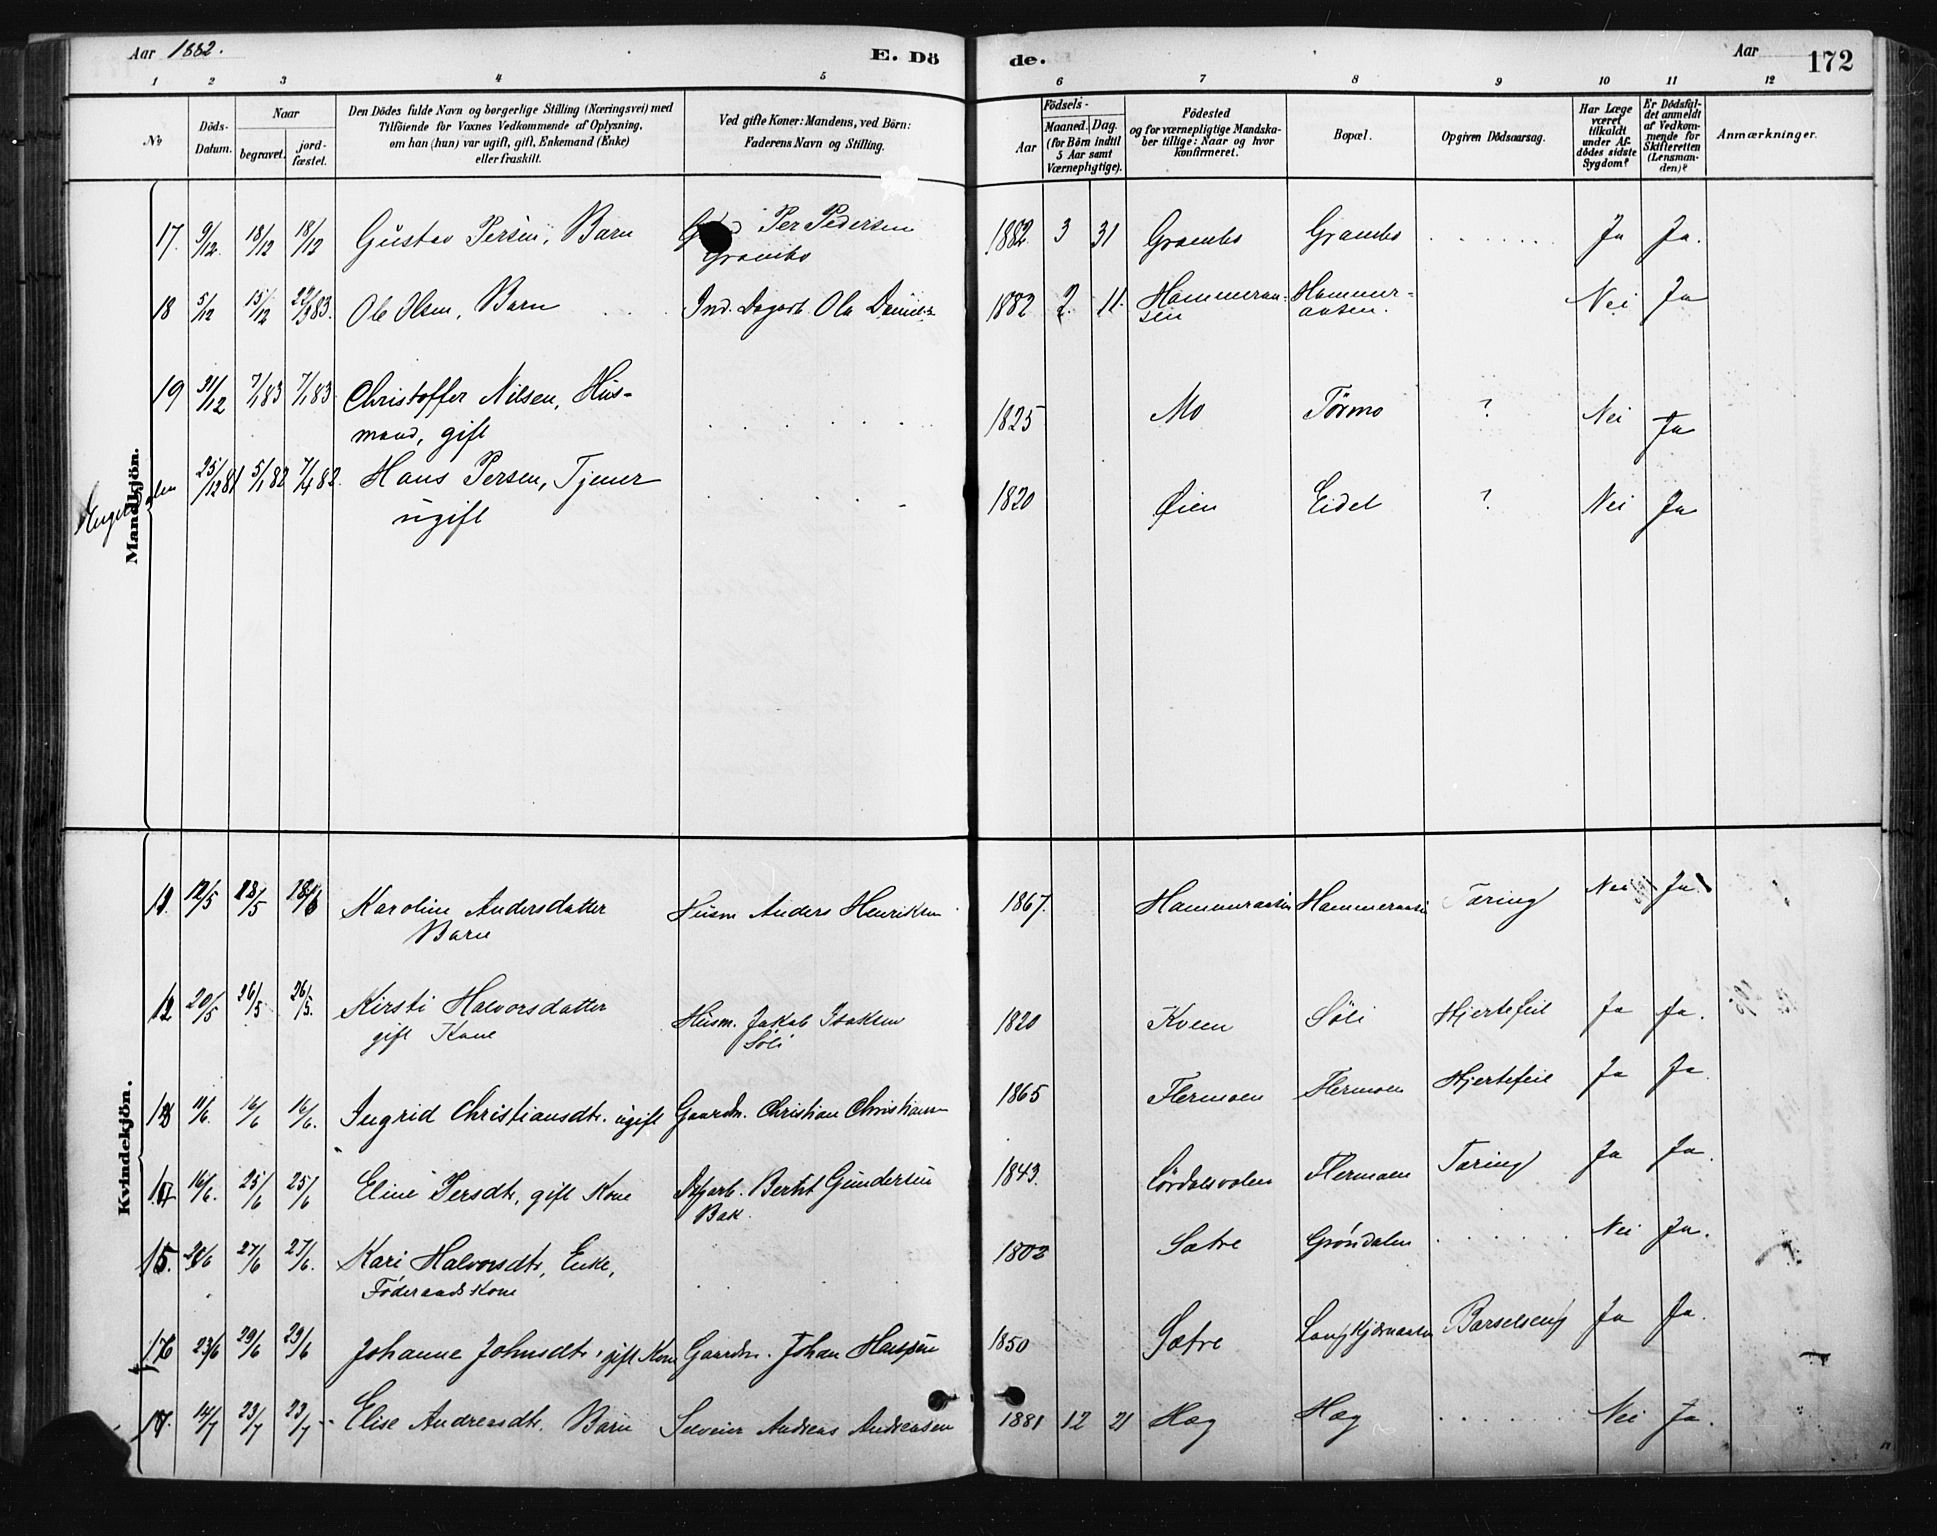 Aar 1882.
E. Dö
de.
Aar
172
1 2 3 4 5 6 7 8 9 10 11 12
No
Döds-Datum.
Naar
begravet.
jord-fæstet.
Den Dödes fulde Navn og borgerlige Stilling (Næringsvei) med
Tilföiende for Vaxnes Vedkommende af Oplysning,
om han (hun) var ugift, gift, Enkemand (Enke)
eller fraskilt.
Ved gifte Koner: Mandens, ved Börn:
Faderens Navn og Stilling.
Födsels-
Aar
Maaned. Dag.
(for Börn indtil
5 Aar samt
Værnepligtige).
Födested
og for værnepligtige Mandska-
ber tillige: Naar og hvor
konfirmeret.
Bopæl.
Opgiven Dödsaarsag.
Har Læge
været
tilkaldt
under Af-
dödes sidste
Sygdom?
Er Dödsfal-
det anmeldt
af Vedkom-
mende for
Skifteretten
(Lensman-
den)?
Anmærkninger.
Mandkjön.
17. 9/12 18/12 18/12 Gustav Persen, Barn Per Pedersen
Grambo
1882 3 31 Grambo Grambo . . . . . . . Ja Ja.
18 5/12 15/12 Ole Olsen, Barn Ind. Dagarb. Ole Daniels.
1882 2 11. Hammeraa-
sen Hammer-
aasen. Nei Ja
19 31/12 7/1 83 7/1 83 Christoffer Nilsen, Hus-
mand, gift
1825 Mo Törmo ? Nei Ja
25/12 81 5/1 82 82. Hans Persen, Tjener
ugift
1820 Øien Eidet ? Nei Ja
Kvindekjön.
11. 12/5 18/5 Karoline Andersdatter
Barn
Husm Anders Henriksen
1867. Hammeraasen Hammeraasen Taring Nei Ja
12 20/5 26/5 26/5. Kirsti Halvorsdatter
gift Kone
Husm. Jakob Isaksen
Söli
1820 Kveen Söli Hjertefeil Ja Ja.
13 11/6. 16/6 16/6. Ingrid Christiansdtr. ugift Gaardm. Christian Christiansen
1865 Flermoen Flermoen Hjertefeil Ja Ja.
16/6. 25/6 25/6 Eline Persdtr, gift Kone Bernt Gundersen
Bak.
1843. Lördalsvolen Flermoen Taring Ja Ja.
15. 27/6 27/6. Kari Halvorsdtr, Enke,
Föderaadskone
1802 Sætre Gröndalen . . . . . . Nei Ja.
16 23/6 29/6 29/6 Johanne Johnsdtr, gift Kone Gaardm. Johan Hansen
1850 Sætre Barselseng Ja Ja.
17. 14/7 23/7 23/7 Elise Andreasdtr. Barn Selveier Andreas Andreasen
1881 12 21 Hag Hag . . . . . . Nei Ja.